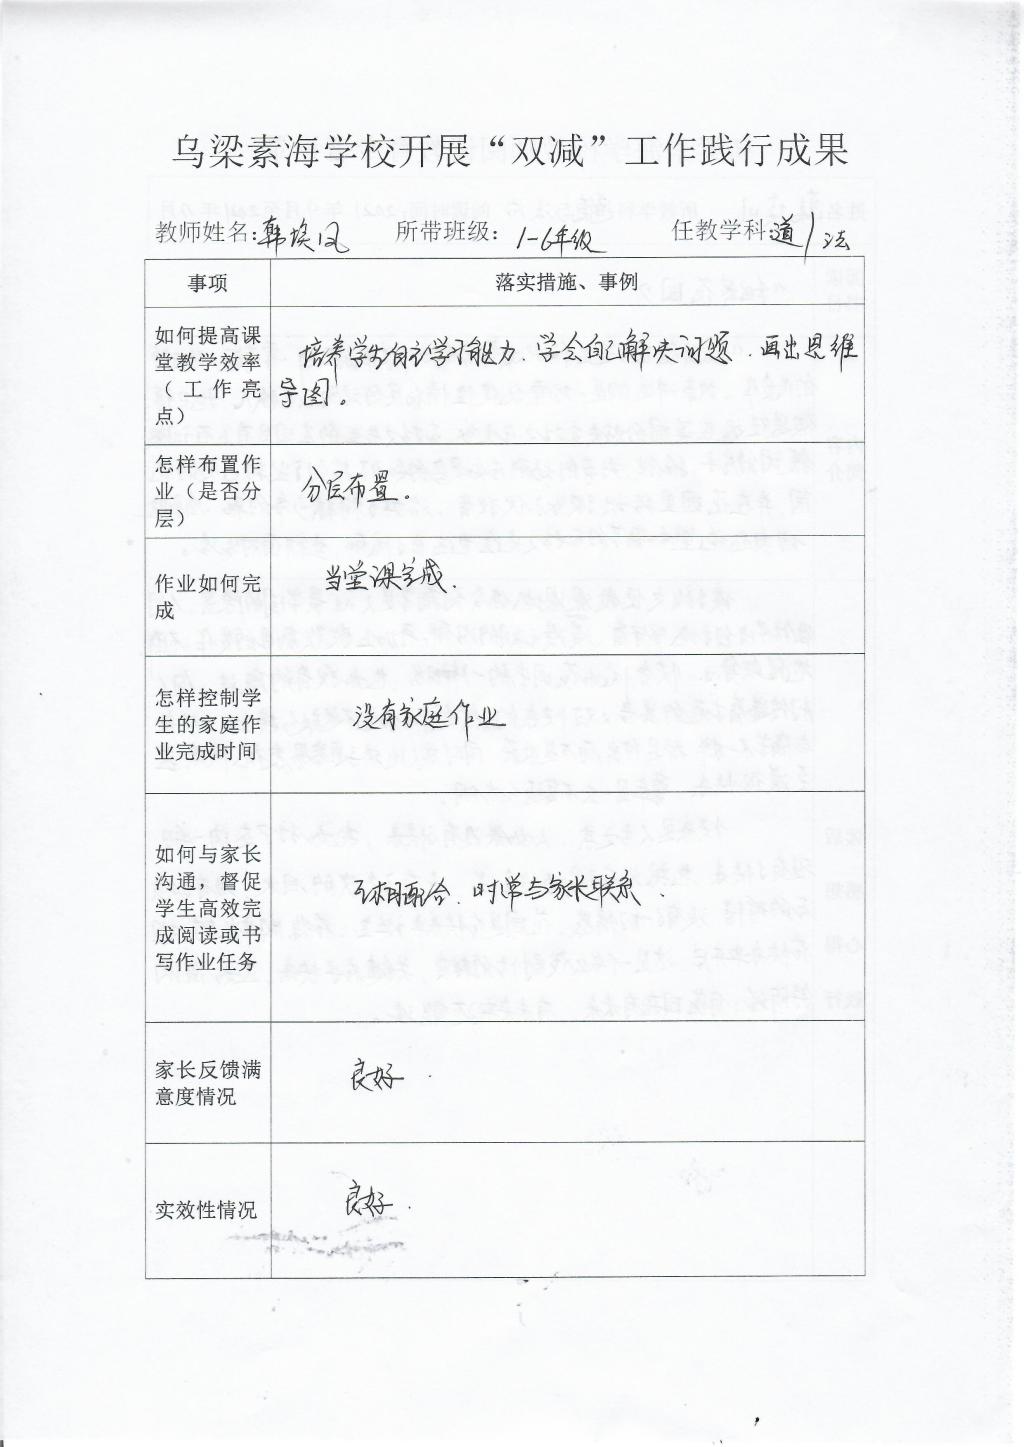 乌梁素海学校开展“双减”工作践行成果
教师姓名:韩焕凤 所带班级: 1-6年级 任教学科:道法
事项 落实措施、事例
如何提高课
堂教学效率
（工作亮
点）
培养学生自主学习能力.学会自己解决问题.画出思维
导图。
怎样布置作
业（是否分
层）
分层布置。
作业如何完
成
当堂课完成.
怎样控制学
生的家庭作
业完成时间
没有家庭作业
如何与家长
沟通，督促
学生高效完
成阅读或书
写作业任务
互相配合.时常与家长联系.
家长反馈满
意度情况
良好.
实效性情况
良好.